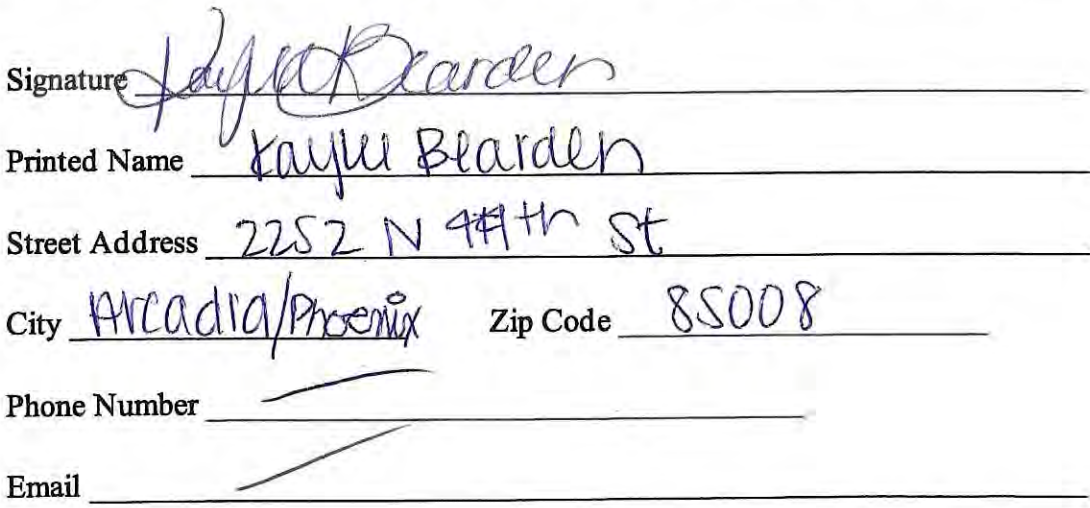 Signature Kayla Bearden
Printed Name Kaylu Bearden
Street Address 2252 N 44th St
City Arcadia/Phoenix Zip Code 85008
Phone Number
Email